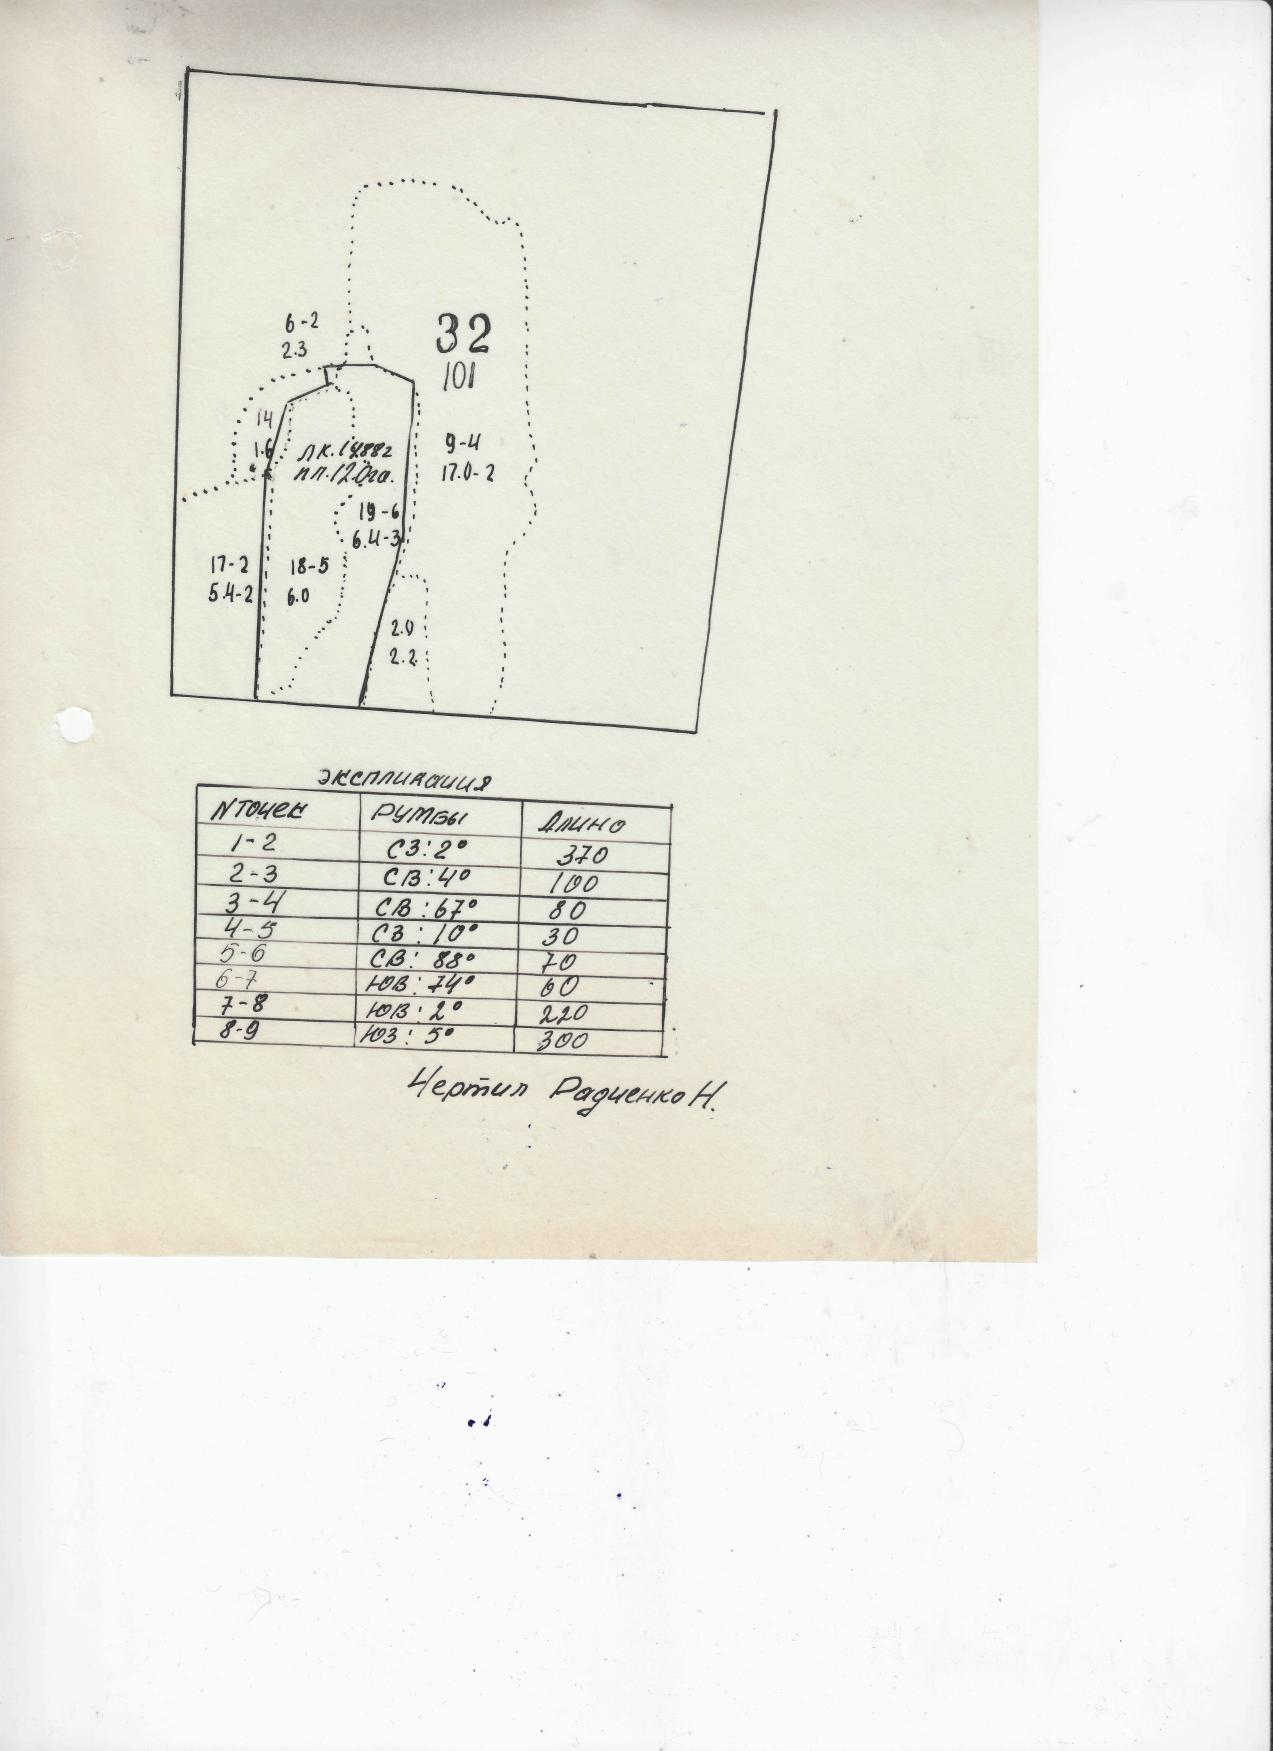 6-2
2.3
32
101
14
1.6
лк. 1988г
пл. 12.0га.
9-4
17.0-2
19-6
6.4-3
17-2
5.4-2
18-5
6.0
2.0
2.2
экспликация
№ точек румбы длино
1-2 СЗ:2° 370
2-3 СВ:4° 100
3-4 СВ:67° 80
4-5 СЗ:10° 30
5-6 СВ:88° 70
6-7 ЮВ:74° 60
7-8 ЮВ:2° 220
8-9 ЮЗ:5° 300
Чертил Радченко Н.